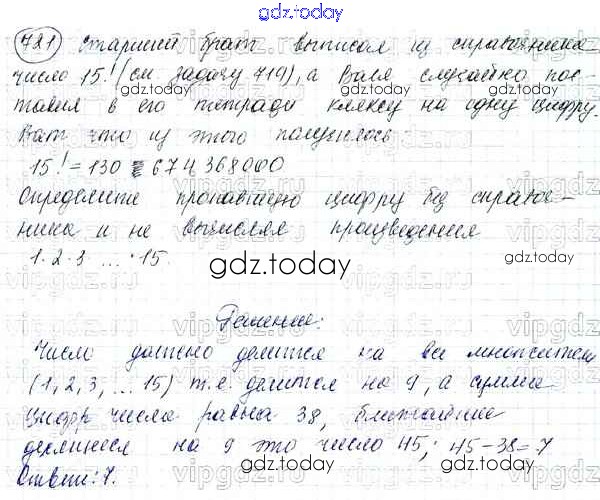 gdz.today
721 Старший брат выписал из справочника
число 15! (см. задачу 719), а Валя случайно пос-
тавил в его тетради кляксу на одну цифру.
Вот что из этого получилось:
15! = 130 674 368000
Определите пропавшую цифру без справоч-
ника и не вычисляя произведения
1·2·3 ...·15.
gdz.today
Решение:
Число должно делится на все множители
(1, 2, 3, ... 15) т.е. делится на 9, а сумма
цифр числа равна 38, ближайшее
делящиеся на 9 это число 45; 45-38=7
Ответ: 7.
gdz.today